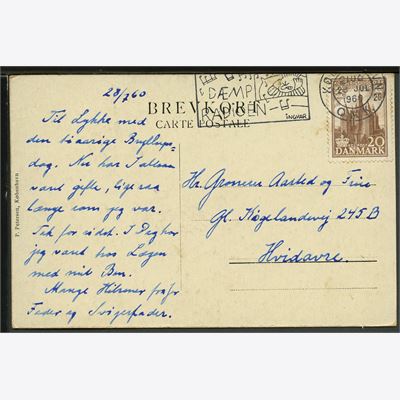 28/7 60
DÆMP
RADIOEN
INGVAR
BREVKORT
CARTE POSTALE
20
DANMARK
Til Lykke med
den 10 aarige Bryllups-
dag. Nu har I allsaa
været gifte, lige saa
længe som jeg var.
Tak for sidst. I Dag har
jeg været hos Lægen
med mit Ben.
Mange Hilsner fra
Fader og Svigerfader.
Hr. Grosserer Aarsted og Frue
Gl. Køgelandevej 245 B
Hvidovre.
P. Petersen, København